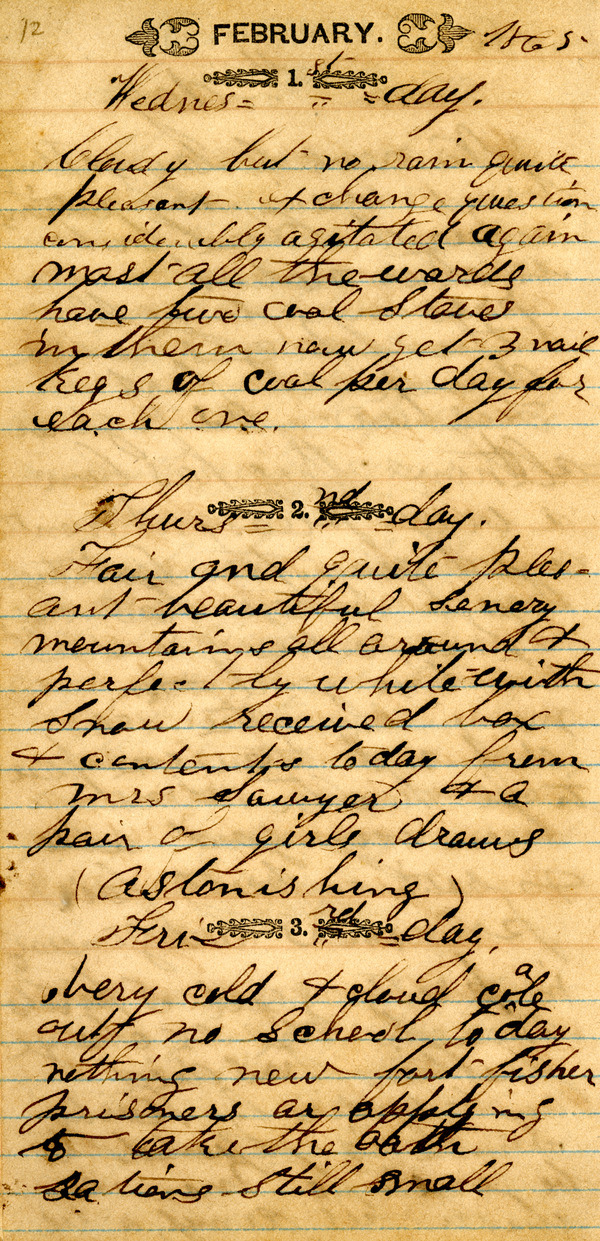 12 FEBRUARY. 1865.
1.st
Wednes= " =day.
Cloudy but no rain quite
pleasant. exchange question
considerably agitated again
most all the wards
have two coal Stoves
in them now get 3 nail
Kegs of coal per day for
each one.
2.nd
Thurs= " =day.
Fair and quite pleas=
ant beautiful senery
mountains all around &
perfectly white with
Snow received box
& contents today from
Mrs Sawyer & a
pair of girls drawers
(Astonishing)
3.rd
Fri= " =day,
very cold & cloud coale
out no School to day
nothing new fort fisher
prisoners ar applying
to take the oath
rations still small